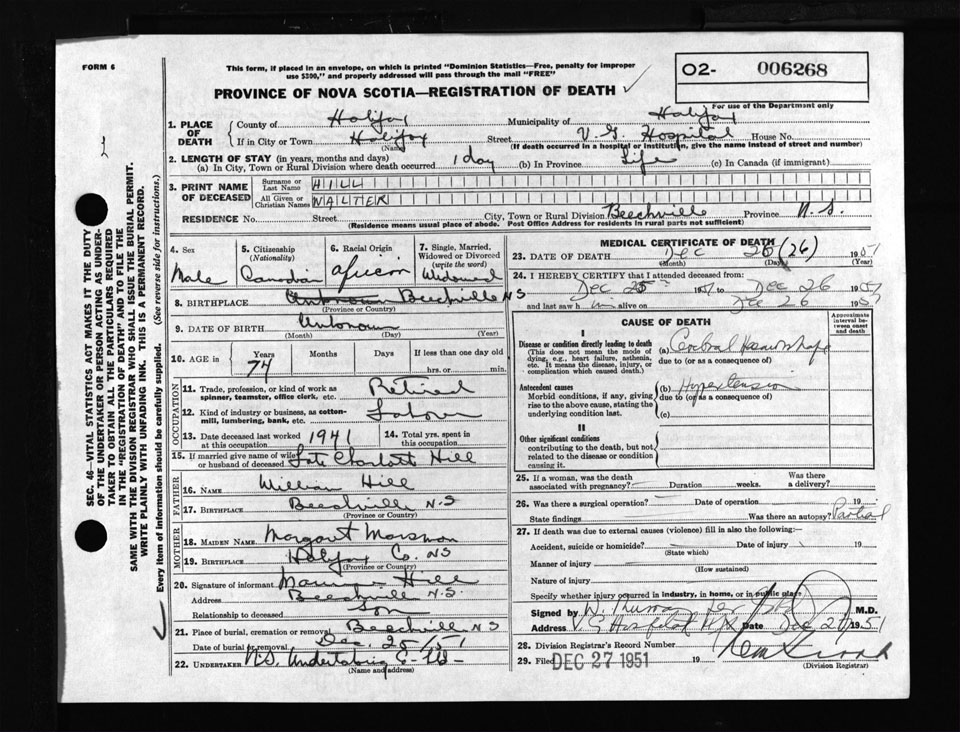 FORM 6
This form, if placed in an envelope, on which is printed "Dominion Statistics—Free, penalty for improper
use $300," and properly addressed will pass through the mail "FREE"
PROVINCE OF NOVA SCOTIA—REGISTRATION OF DEATH
O2- 006268
For use of the Department only
SEC. 46—VITAL STATISTICS ACT MAKES IT THE DUTY
OF THE UNDERTAKER OR PERSON ACTING AS UNDER-
TAKER TO OBTAIN ALL THE PARTICULARS REQUIRED
IN THE "REGISTRATION OF DEATH" AND TO FILE THE
SAME WITH THE DIVISION REGISTRAR WHO SHALL ISSUE THE BURIAL PERMIT.
WRITE PLAINLY WITH UNFADING INK. THIS IS A PERMANENT RECORD.
Every item of information should be carefully supplied. (See reverse side for instructions.)
1. PLACE OF DEATH
County of Halifax Municipality of Halifax
If in City or Town Halifax Street V.G. Hospital House No.
(Name) (If death occurred in a hospital or institution, give the name instead of street and number)
2. LENGTH OF STAY (in years, months and days)
(a) In City, Town or Rural Division where death occurred 1 day (b) In Province Life (c) In Canada (if immigrant)
3. PRINT NAME OF DECEASED
Surname or Last Name HILL
All Given or Christian Names WALTER
RESIDENCE No. Street City, Town or Rural Division Beechville Province N.S.
(Residence means usual place of abode. Post Office Address for residents in rural parts not sufficient)
4. Sex Male
5. Citizenship (Nationality) Canadian
6. Racial Origin African
7. Single, Married, Widowed or Divorced (write the word) Widowed
8. BIRTHPLACE Unknown Beechville NS
(Province or Country)
9. DATE OF BIRTH Unknown
(Month) (Day) (Year)
10. AGE in Years Months Days If less than one day old
74 hrs. or min.
OCCUPATION
11. Trade, profession, or kind of work as
spinner, teamster, office clerk, etc. Retired
12. Kind of industry or business, as cotton-
mill, lumbering, bank, etc. Labour
13. Date deceased last worked at this occupation 1941 14. Total yrs. spent in this occupation
15. If married give name of wife
or husband of deceased Late Charlotte Hill
FATHER
16. NAME William Hill
17. BIRTHPLACE Beechville N.S
(Province or Country)
MOTHER
18. MAIDEN NAME Margaret
19. BIRTHPLACE Halifax Co. NS
(Province or Country)
20. Signature of informant Hill
Address Beechville N.S.
Relationship to deceased Son
21. Place of burial, cremation or removal Beechville NS
Date of burial or removal Dec. 28/51
22. UNDERTAKER N.S. Undertaking C- Ltd-
(Name and address)
MEDICAL CERTIFICATE OF DEATH
23. DATE OF DEATH Dec 25 (26) 1951
(Month) (Day) (Year)
24. I HEREBY CERTIFY that I attended deceased from:
Dec 25th 1951 to Dec 26 1951
and last saw him alive on Dec 26 1951
CAUSE OF DEATH
Approximate interval between onset and death
I
Disease or condition directly leading to death
(This does not mean the mode of
dying, e.g., heart failure, asthenia,
etc. It means the disease, injury, or
complication which caused death.)
(a) Cerebral Haemorrhage
due to (or as a consequence of)
Antecedent causes
Morbid conditions, if any, giving
rise to the above cause, stating the
underlying condition last.
(b) Hypertension
due to (or as a consequence of)
(c)
II
Other significant conditions
contributing to the death, but not
related to the disease or condition
causing it.
25. If a woman, was the death
associated with pregnancy? Duration weeks. Was there a delivery?
26. Was there a surgical operation? Date of operation 19
State findings Was there an autopsy? Partial
27. If death was due to external causes (violence) fill in also the following:—
Accident, suicide or homicide? Date of injury 19
(State which)
Manner of injury
(How sustained)
Nature of injury
Specify whether injury occurred in industry, in home, or in public place
Signed by M.D.
Address V G Hospital Hfx Date Dec 27 1951
28. Division Registrar's Record Number
29. Filed DEC 27 1951 19
(Division Registrar)